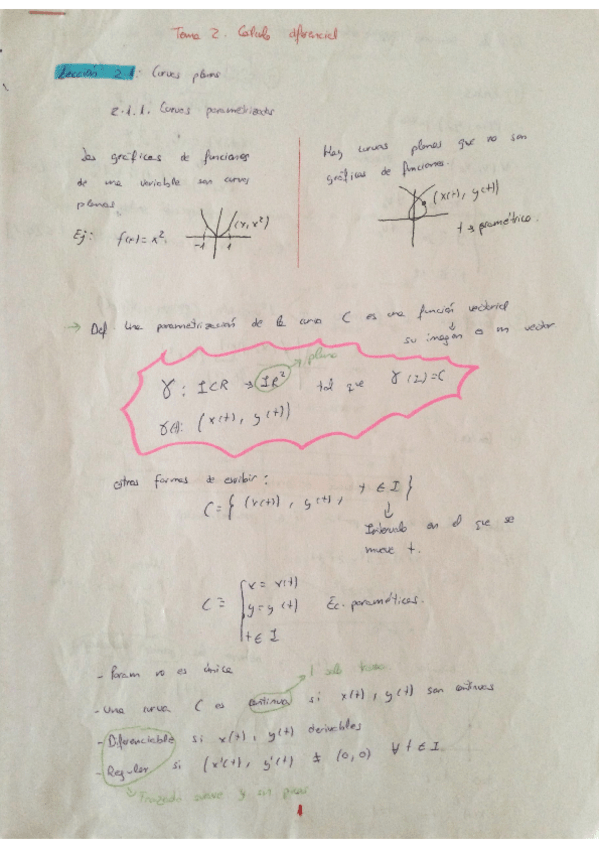 Tema 2. Calculo diferencial
Lección 2.1: Curvas planas
2.1.1. Curvas parametrizadas
Las gráficas de funciones
de una variable son curvas
planas.
Ej: f(x) = x²
(x, x²)
-1 1
Hay curvas planas que no son
gráficas de funciones.
(x(t), y(t))
t → paramétrico.
→ Def. Una parametrización de la curva C es una función vectorial
su imagen es un vector
plano
γ: I⊂R → IR² tal que γ(I)=C
γ(t): (x(t), y(t))
otras formas de escribir:
C = { (x(t), y(t), t ∈ I }
Intervalo en el que se
mueve t.
C ≡ { x = x(t)
y = y(t) Ec. paraméticas.
t ∈ I
- Param no es única
1 solo trazo
- Una curva C es continua si x(t), y(t) son continuas
- Diferenciable si x(t), y(t) derivables
- Regular si (x'(t), y'(t) ≠ (0,0) ∀ t ∈ I
Trazado suave y sin picos
1